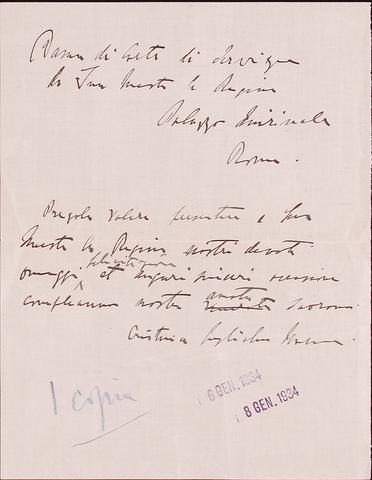 Dama di Corte di Servizio
di Sua Maestà la Regina
Palazzo Quirinale
Roma.
Pregola volere presentare a Sua
Maestà la Regina nostri devoti
felicitazioni
omaggi et auguri sinceri occasione
amata
compleanno nostra Sovrana.
Cristina
1 copia
6 GEN. 1934
8 GEN. 1934